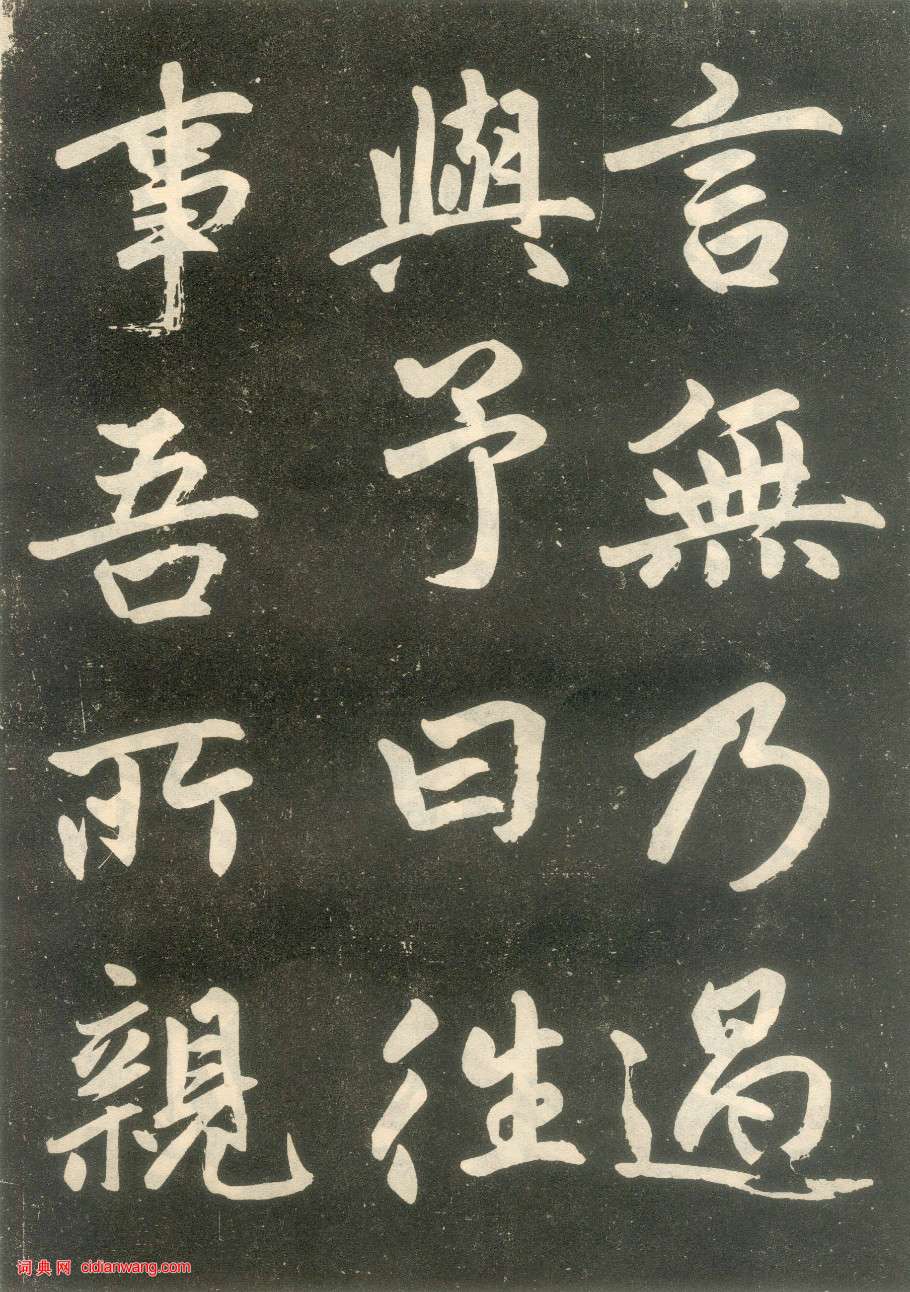 言無乃過
與予曰往
事吾所親
词典网 cidianwang.com